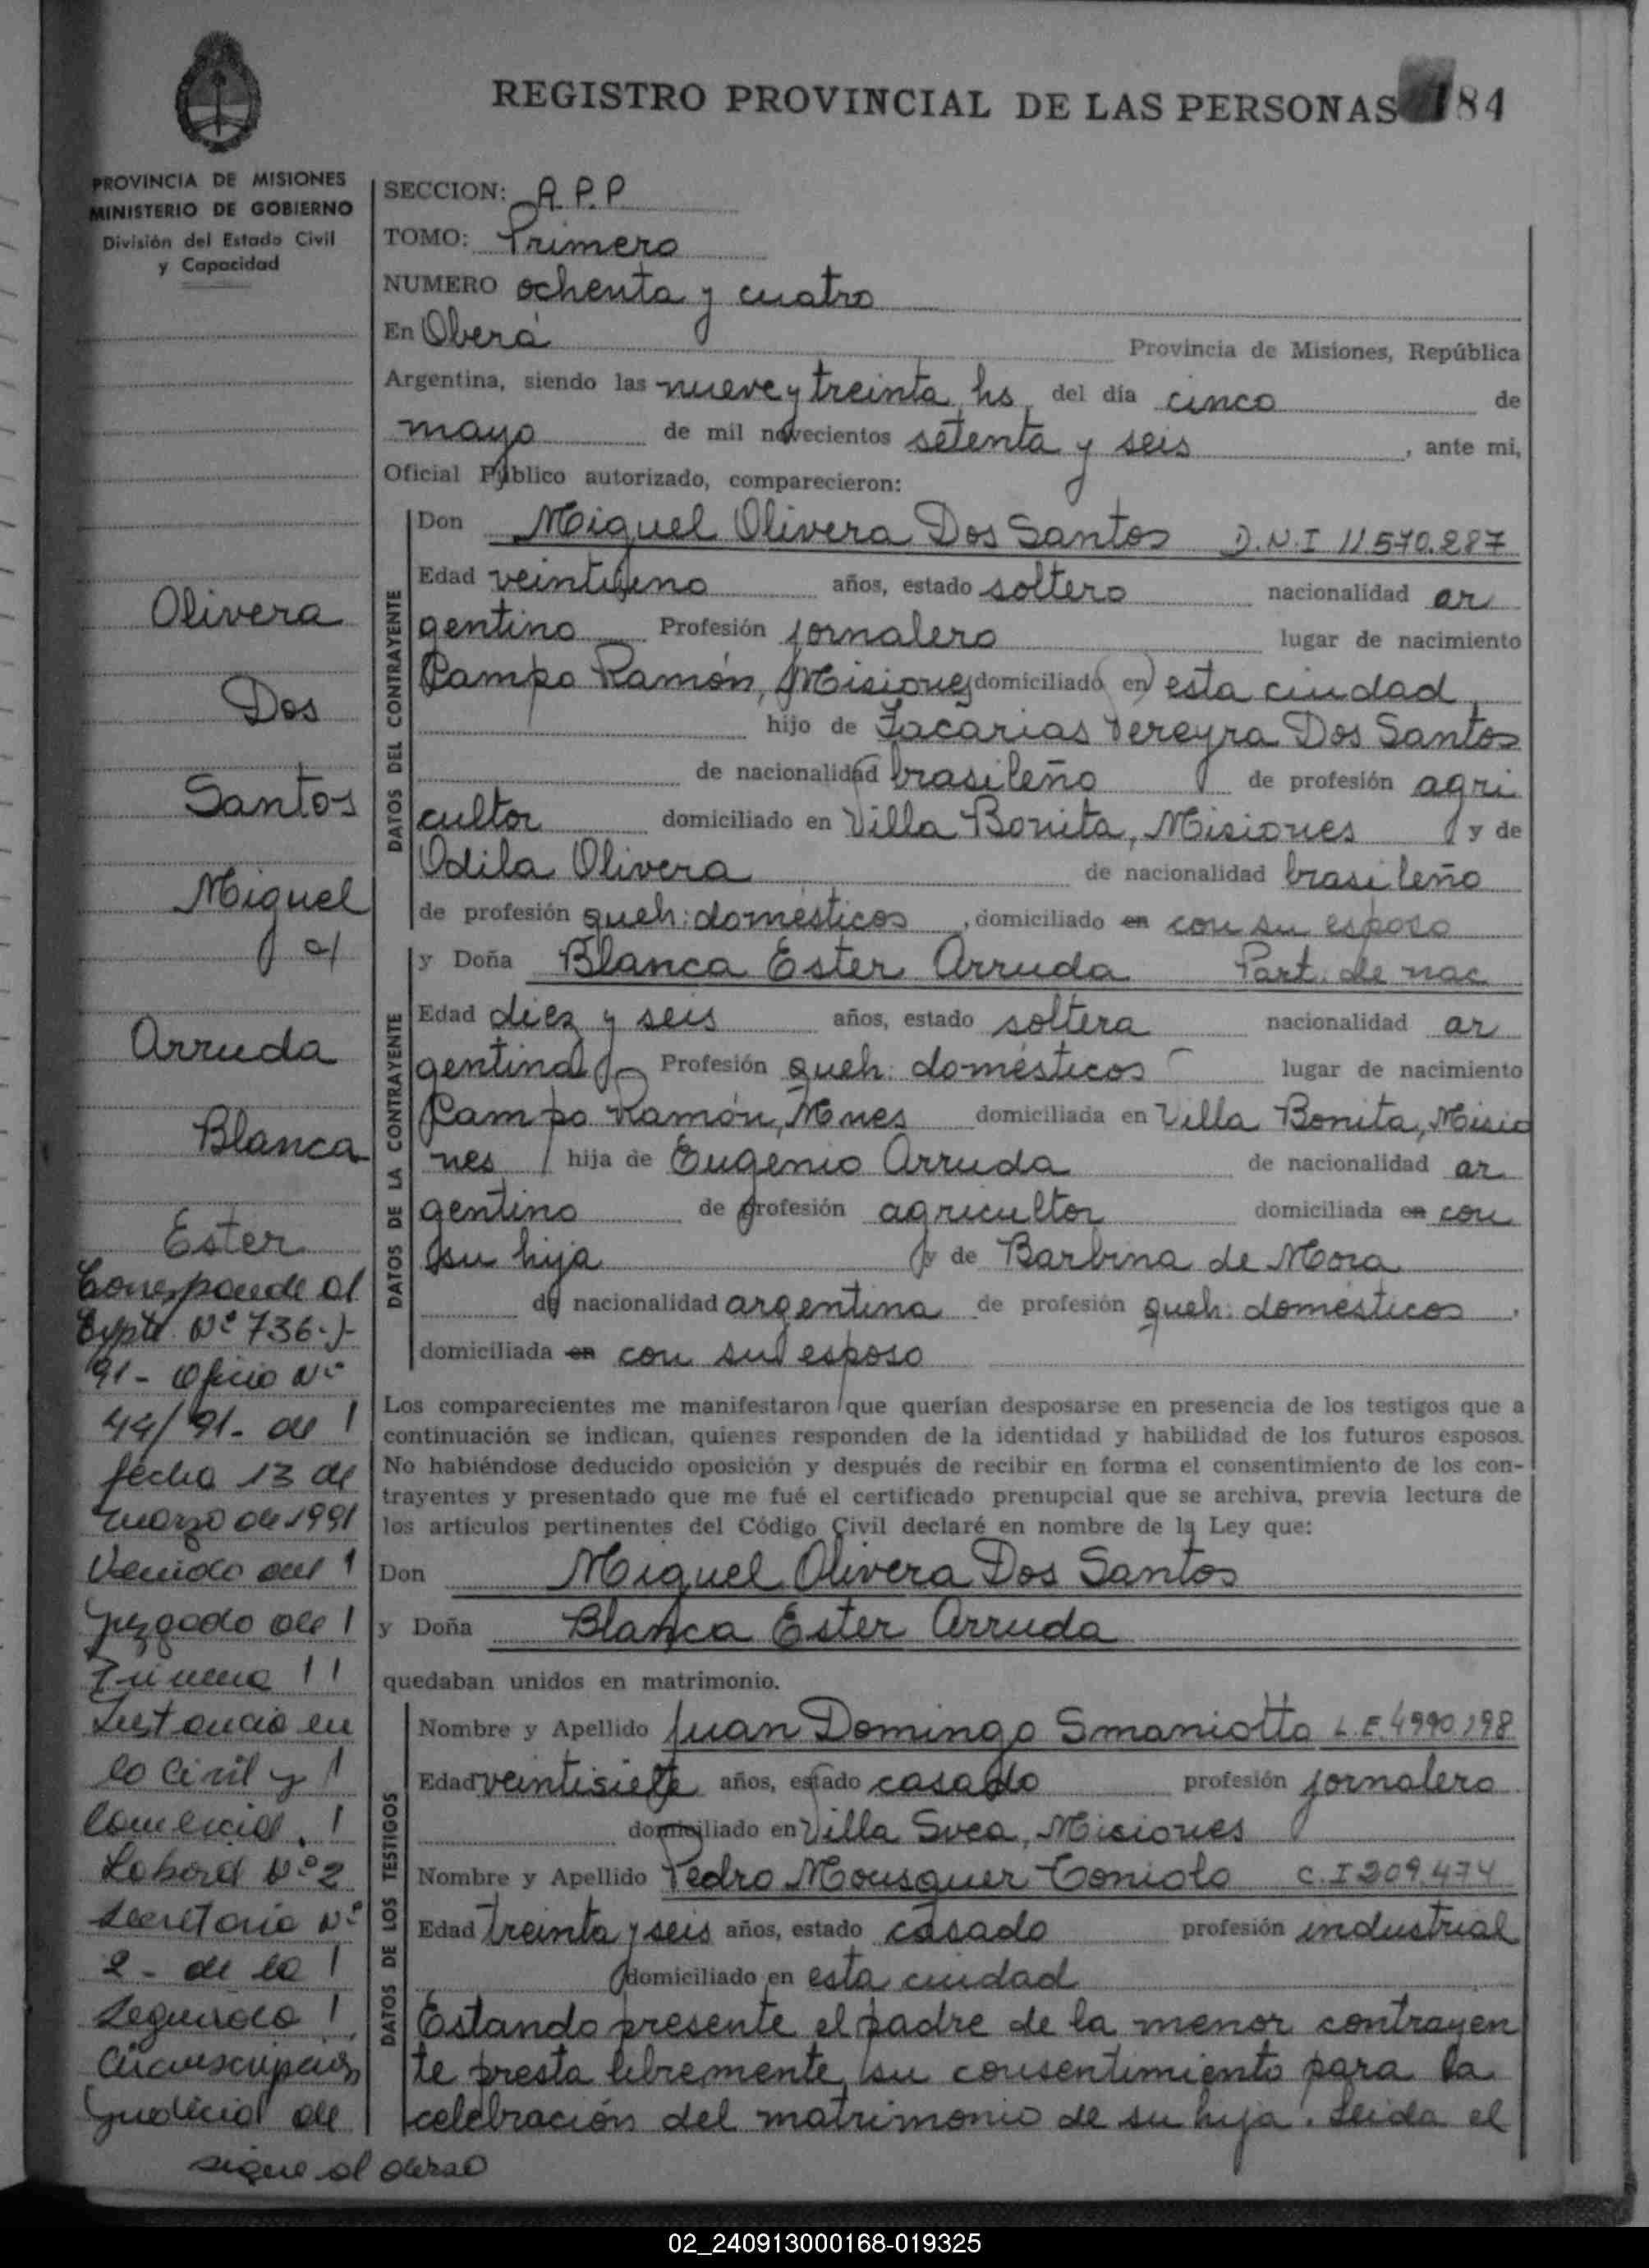 REGISTRO PROVINCIAL DE LAS PERSONAS 184
PROVINCIA DE MISIONES
MINISTERIO DE GOBIERNO
División del Estado Civil
y Capacidad
SECCION: A.P.P
TOMO: Primero
NUMERO ochenta y cuatro
En Oberá Provincia de Misiones, República
Argentina, siendo las nueve y treinta hs, del día cinco de
mayo de mil novecientos setenta y seis, ante mi,
Oficial Público autorizado, comparecieron:
DATOS DEL CONTRAYENTE
Don Miguel Olivera Dos Santos D.N.I 11570.287
Edad veintiuno años, estado soltero nacionalidad ar
gentino Profesión jornalero lugar de nacimiento
Campo Ramón, Misiones domiciliado en esta ciudad
hijo de Zacarias Pereyra Dos Santos
de nacionalidad brasileño de profesión agri
cultor domiciliado en Villa Bonita, Misiones y de
Odila Olivera de nacionalidad brasileño
de profesión queh: domésticos, domiciliado en con su esposo
DATOS DE LA CONTRAYENTE
y Doña Blanca Ester Arruda Part. de nac
Edad diez y seis años, estado soltera nacionalidad ar
gentina Profesión queh: domésticos lugar de nacimiento
Campo Ramón, Mnes domiciliada en Villa Bonita, Misio
nes hija de Eugenio Arruda de nacionalidad ar
gentino de profesión agricultor domiciliada en con
su hija y de Barbina de Mora
de nacionalidad argentina de profesión queh: domésticos,
domiciliada en con su esposo
Los comparecientes me manifestaron que querían desposarse en presencia de los testigos que a
continuación se indican, quienes responden de la identidad y habilidad de los futuros esposos.
No habiéndose deducido oposición y después de recibir en forma el consentimiento de los con-
trayentes y presentado que me fué el certificado prenupcial que se archiva, previa lectura de
los artículos pertinentes del Código Civil declaré en nombre de la Ley que:
Don Miguel Olivera Dos Santos
y Doña Blanca Ester Arruda
quedaban unidos en matrimonio.
DATOS DE LOS TESTIGOS
Nombre y Apellido Juan Domingo Smaniotto L.E. 4990.198
Edad veintisiete años, estado casado profesión jornalero
domiciliado en Villa Svea, Misiones
Nombre y Apellido Pedro Mousquer Coniolo C.I 209.474
Edad treinta y seis años, estado casado profesión industrial
domiciliado en esta ciudad
Estando presente el padre de la menor contrayen
te presta libremente su consentimiento para la
celebración del matrimonio de su hija. Leida el
Olivera
Dos
Santos
Miguel
c/
Arruda
Blanca
Ester
Corresponde al
Expte. Nº 736-J-
91 - Oficio Nº
44/91- de
fecha 13 de
marzo de 1991
Venido del
Juzgado de
Primera
Instancia en
lo Civil y
Comercial,
Laboral Nº 2
Secretaria Nº
2 - de la
Segunda
Circunscripción
Judicial de
sigue al dorso
02_240913000168-019325